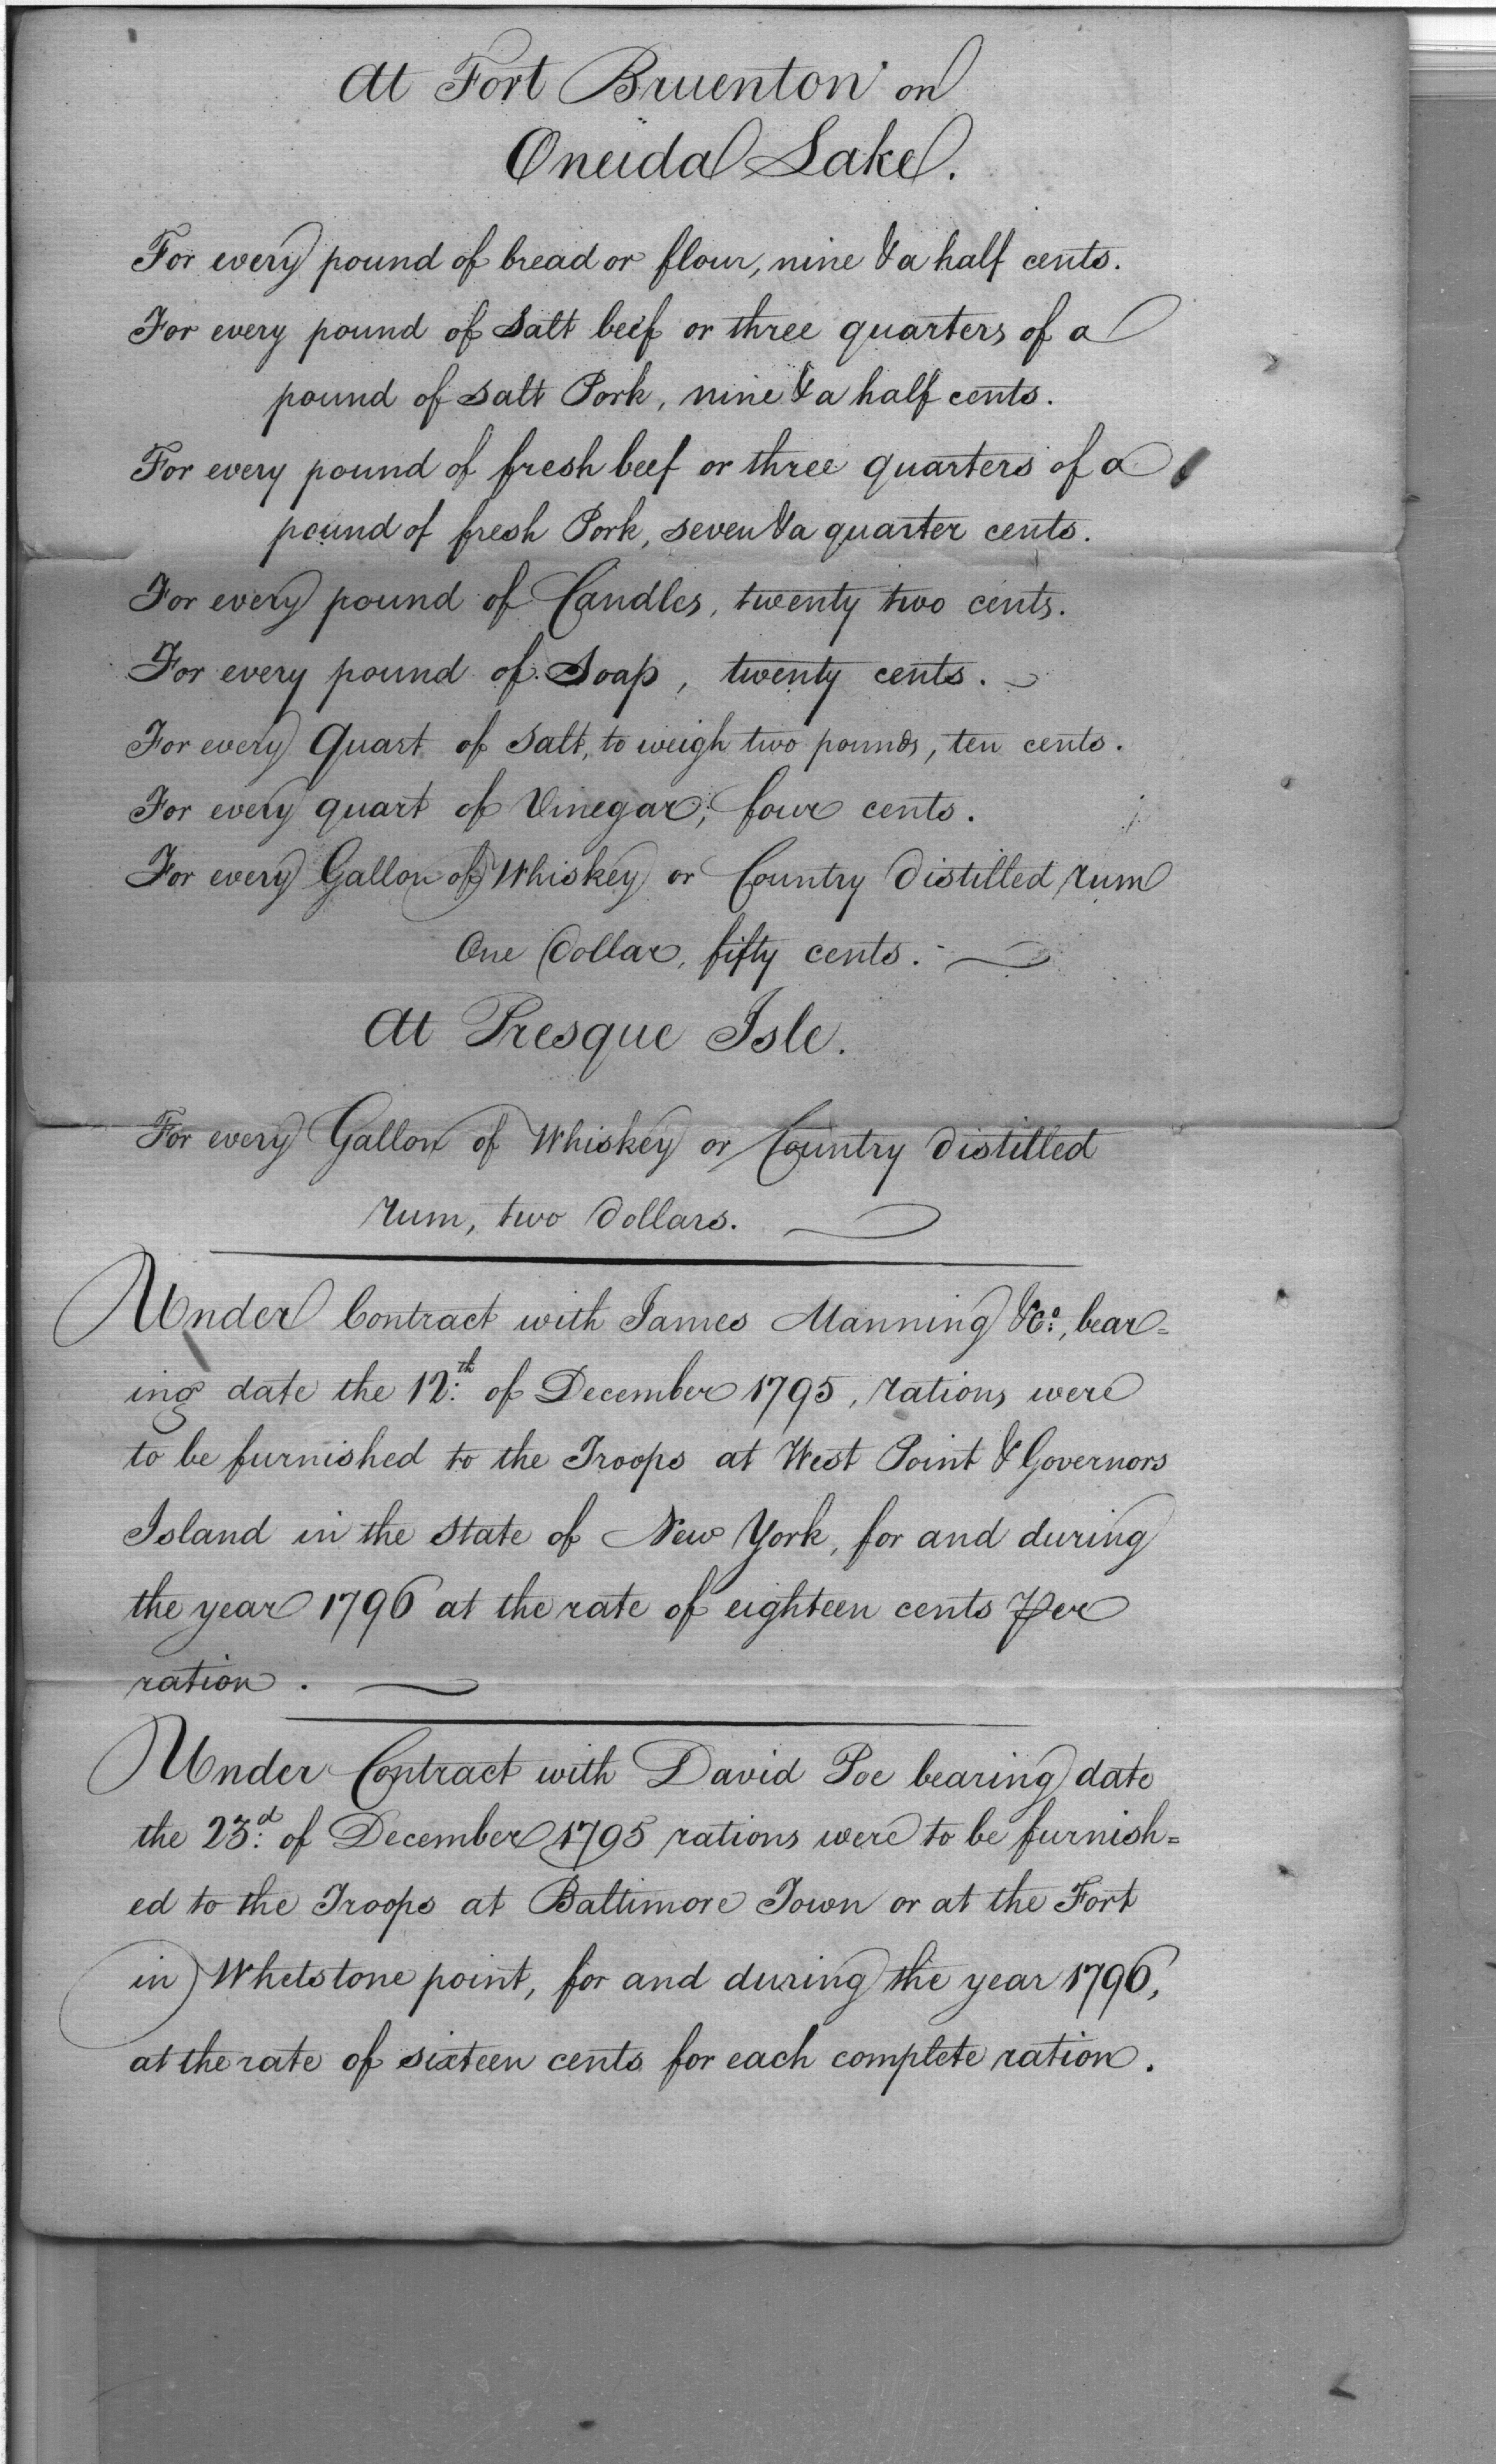 At Fort Bruenton on
Oneida Lake.
For every pound of bread or flour, nine & a half cents.
For every pound of Salt beef or three quarters of a
pound of salt Pork, nine & a half cents.
For every pound of fresh beef or three quarters of a
pound of fresh Pork, seven & a quarter cents.
For every pound of Candles, twenty two cents.
For every pound of Soap, twenty cents.
For every Quart of Salt, to weigh two pounds, ten cents.
For every quart of Vinegar, four cents.
For every Gallon of Whiskey or Country distilled rum
One Dollar, fifty cents.
At Presque Isle.
For every Gallon of Whiskey or Country distilled
rum, two Dollars.
Under Contract with James Manning & Co., bear=
ing date the 12th of December 1795, rations were
to be furnished to the Troops at West Point & Governors
Island in the State of New York, for and during
the year 1796 at the rate of eighteen cents per
ration.
Under Contract with David Poe bearing date
the 23d of December 1795 rations were to be furnish=
ed to the Troops at Baltimore Town or at the Fort
in Whetstone point, for and during the year 1796,
at the rate of sixteen cents for each complete ration.